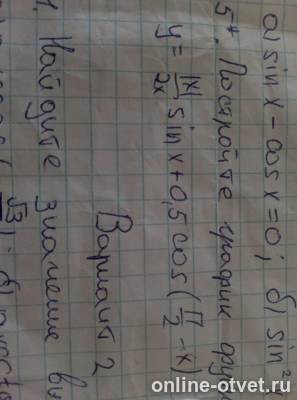 а) sin x - cos x = 0; б) sin²
5*. Постройте график
y = |x|/2x sin x + 0,5 cos (π/2 - x)
Вариант 2
1. Найдите значение
online-otvet.ru